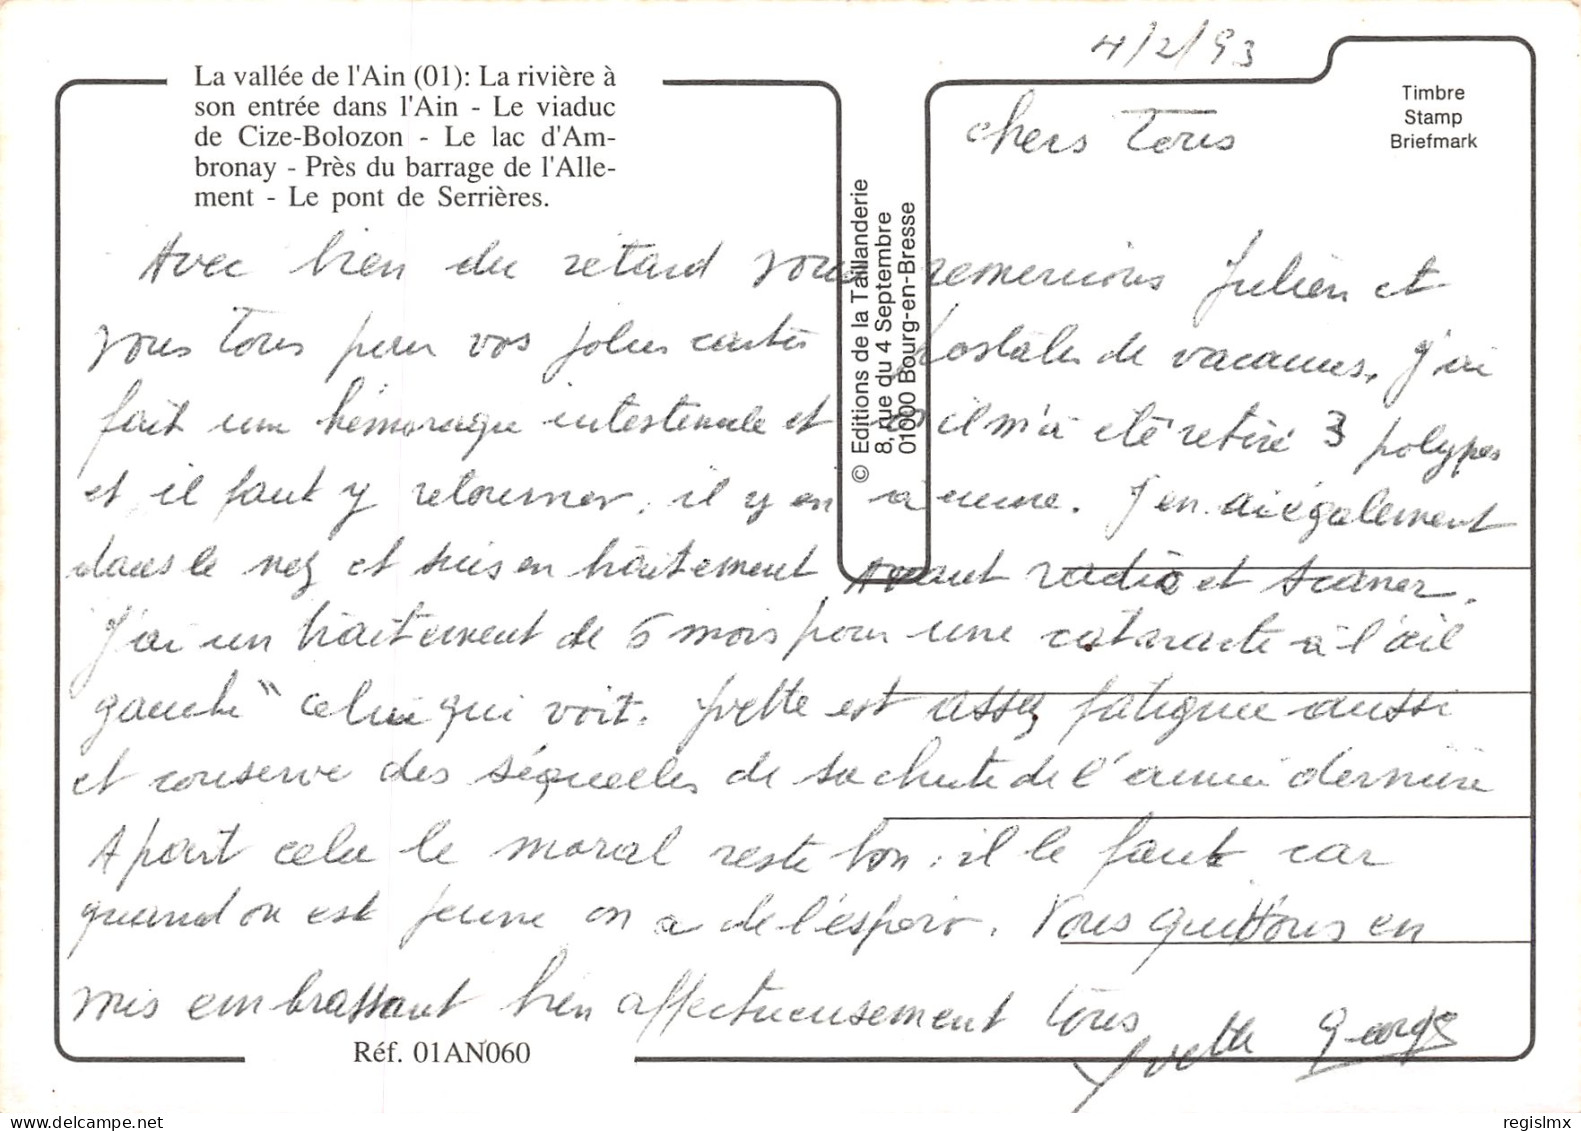 4/2/93
La vallée de l'Ain (01): La rivière à
son entrée dans l'Ain - Le viaduc
de Cize-Bolozon - Le lac d'Am-
bronay - Près du barrage de l'Alle-
ment - Le pont de Serrières.
Timbre
Stamp
Briefmark
© Editions de la Taillanderie
8, rue du 4 Septembre
01000 Bourg-en-Bresse
chers Tous
Avec bien du retard vous remercions Julien et
vous Tous pour vos jolies cartes postales de vacances, J'ai
fait une hémoragie intestinale et il m'a été retiré 3 polypes
et il faut y retourner, il y en a une. J'en ai également
dans le nez et suis en traitement Avant radio et scaner.
J'ai un traitement de 6 mois pour une cataracte à l'œil
gauche " celui qui voit. Yvette est assez fatiguée aussi
et conserve des séquelles de sa chute de l'année dernière
A part cela le moral reste bon : il le faut car
quand on est jeune on a de l'espoir. Vous quittons en
vous embrassant bien affectueusement tous
Yvette George
Réf. 01AN060
delcampe.net
regislmx